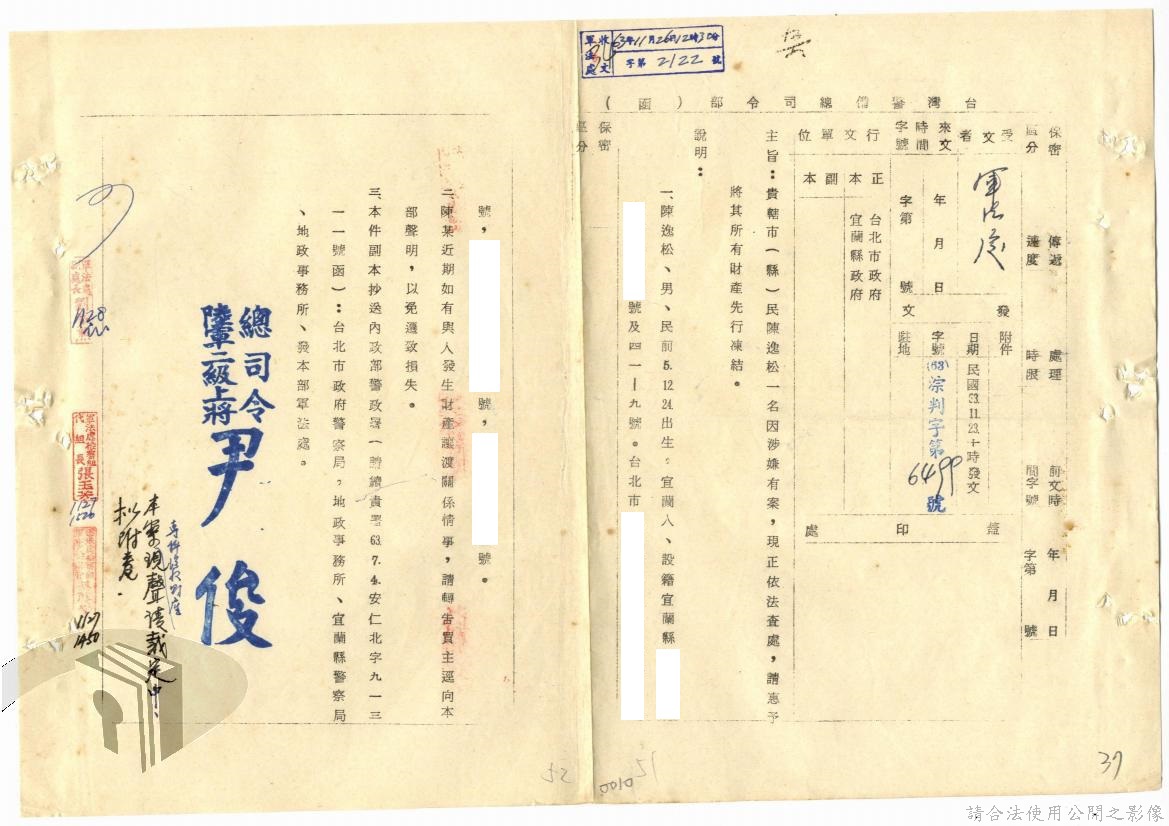 軍法處
收文
63年11月26日12時30分
字第2122號
台灣警備總司令部（函）
保密區分
傳遞速度
處理時限
前文時間字號
年月日
字第號
受文者
軍法處
來文
時間
字號
年月日
字第號
行文單位
正本
台北市政府
宜蘭縣政府
副本
發文
附件
日期
民國63.11.23.十時發文
字號
(63)淙判字第6499號
駐地
蓋印處
主旨：貴轄市（縣）民陳逸松一名因涉嫌有案，現正依法查處，請惠予
將其所有財產先行凍結。
說明：
一、陳逸松、男、民前5.12.24.出生。宜蘭人、設籍宜蘭縣
號及四一—九號。台北市
保密區分
號，號，號。
二、陳某近期如有與人發生財產讓渡關係情事，請轉告買主逕向本
部聲明，以免遭致損失。
三、本件副本抄送內政部警政署（請續貴署63.7.4.安仁北字九一三
一一號函）：台北市政府警察局。地政事務所、宜蘭縣警察局
、地政事務所、發本部軍法處。
總司令
陸軍二級上將 尹俊
本案現聲請裁定中、
擬附卷.
軍法處檢察組
代組長張玉芳
1127
1520
1128
1127
1450
52
51
0010
37
請合法使用公開之影像